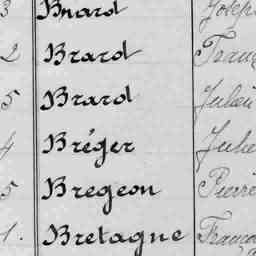 3 Bnard Joseph
2 Brard Franç
5 Brard Julien
4 Bréger Julie
5 Bregeon Pierre
1. Bretagne Franço